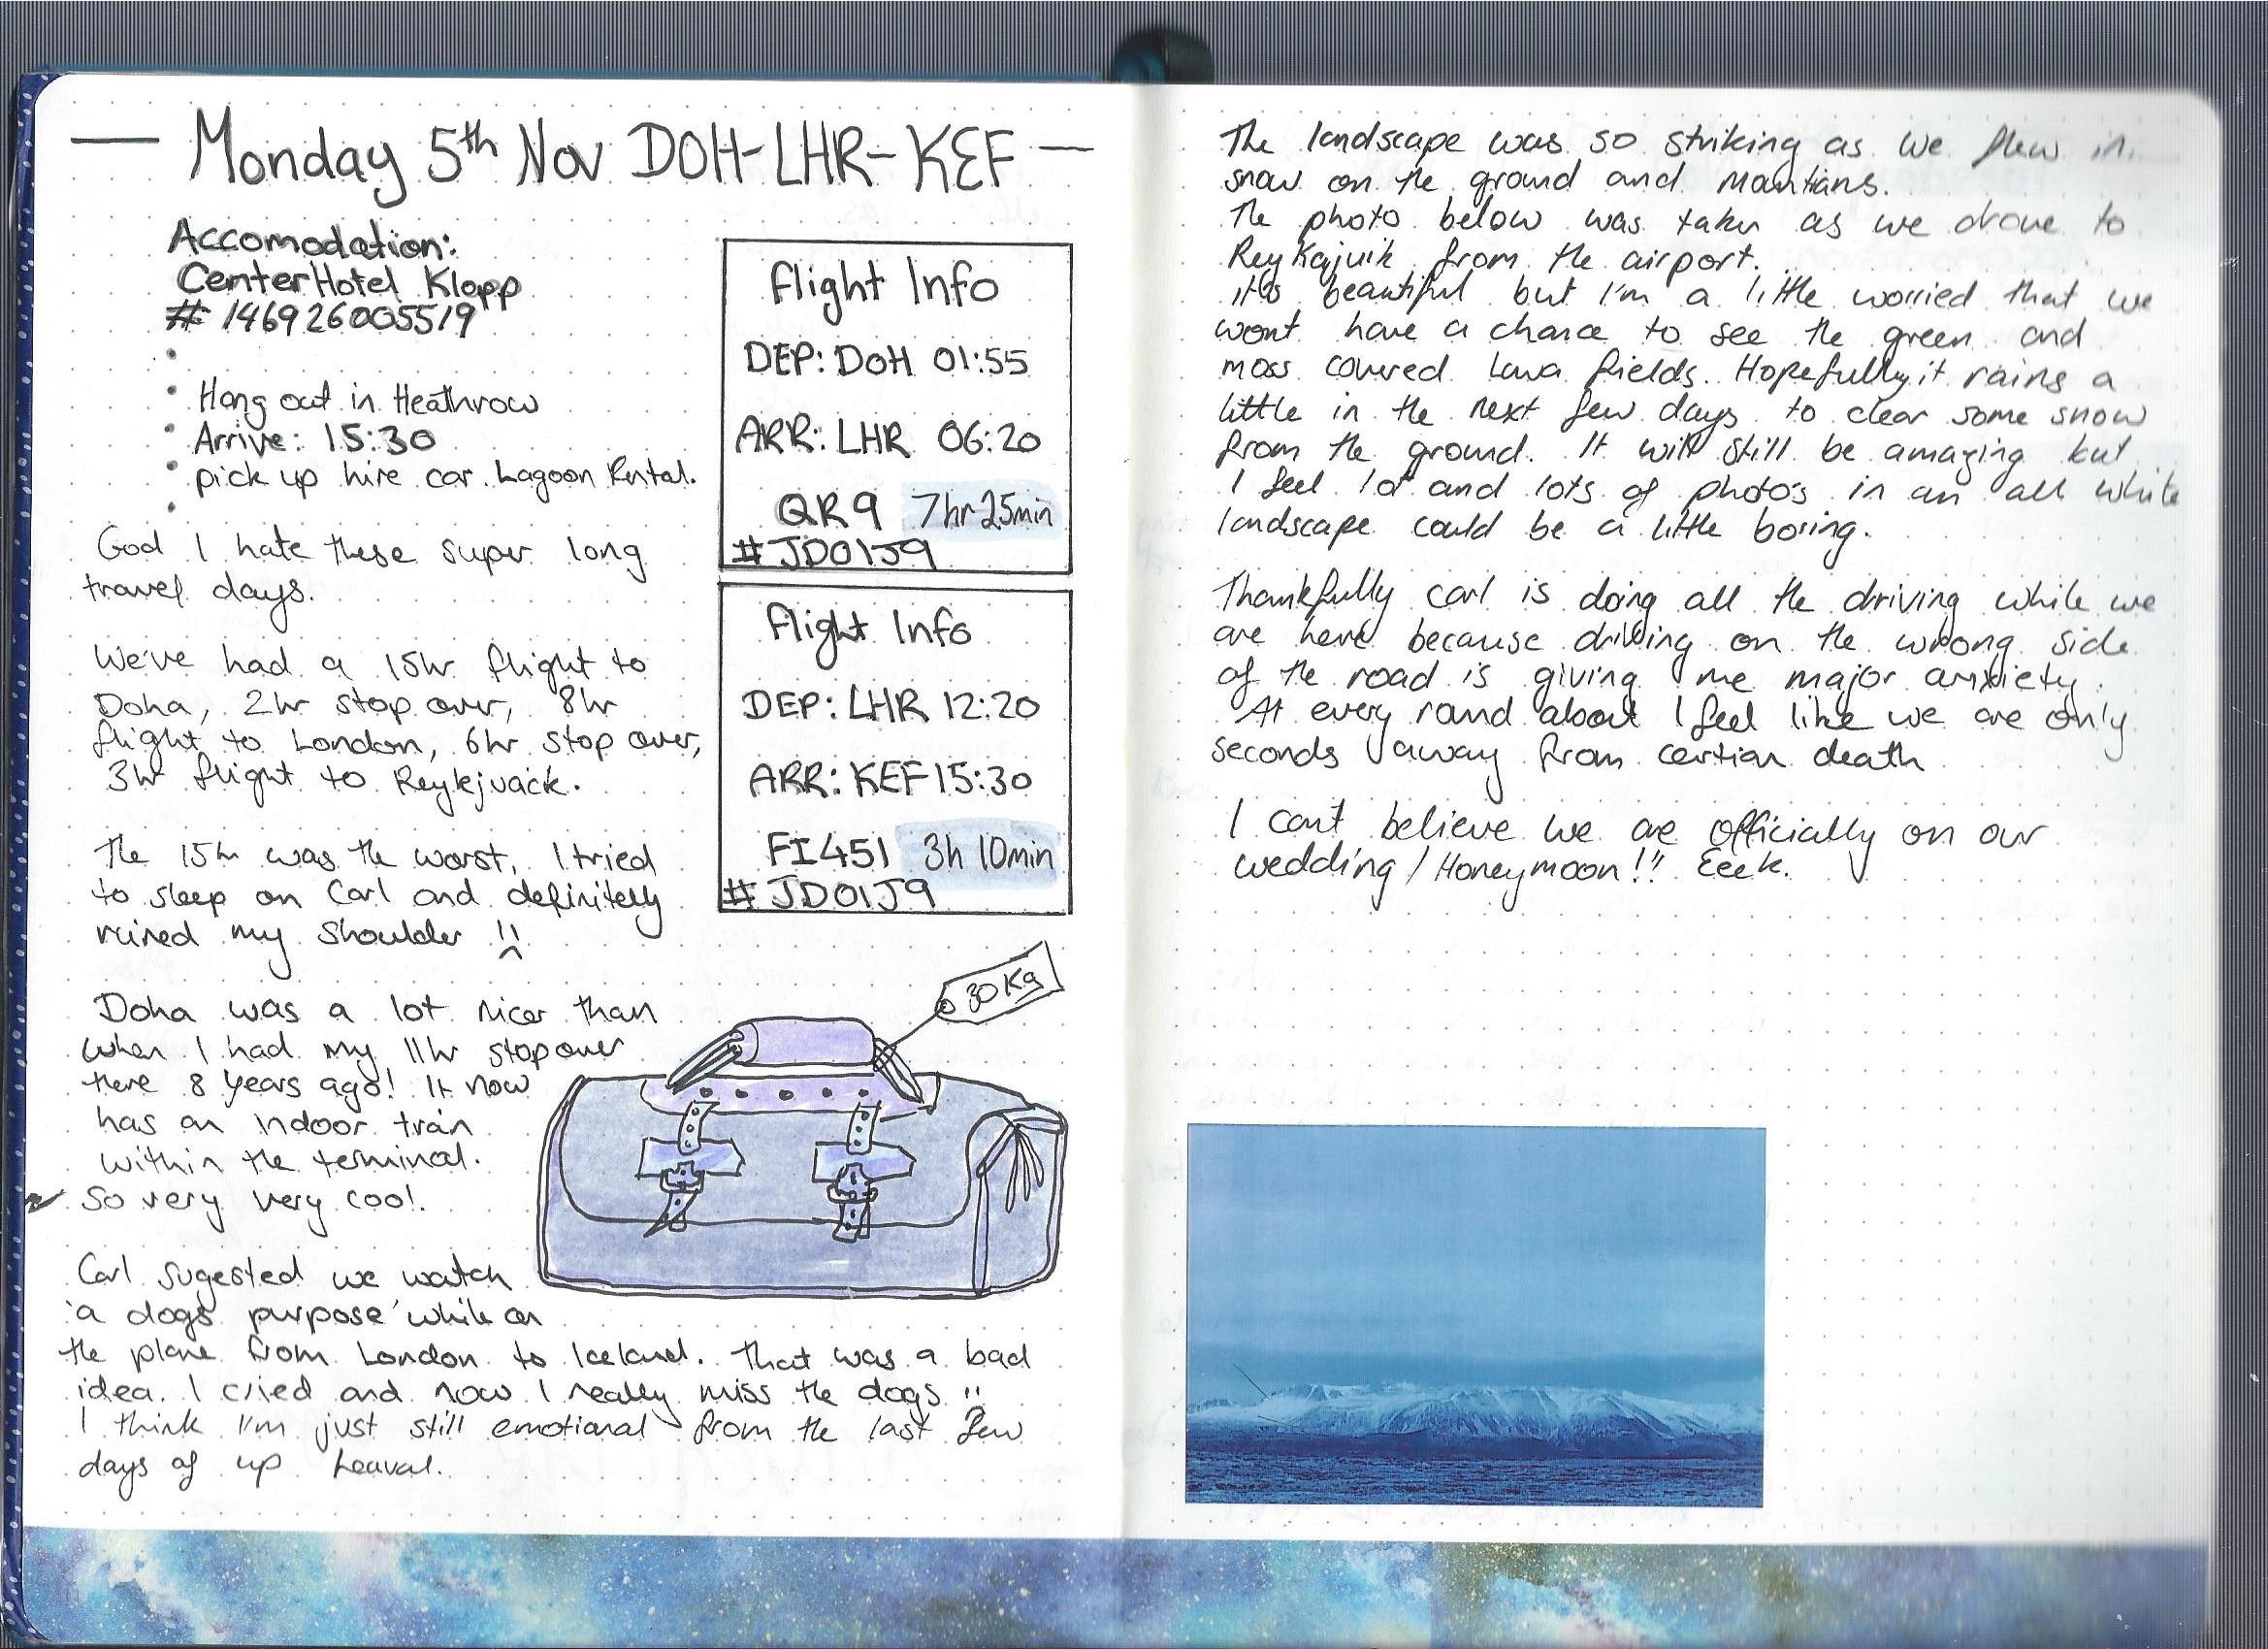 Monday 5th Nov DOH-LHR-KEF
Accomodation:
CenterHotel Klopp
# 146926005519
Hang out in Heathrow
Arrive: 15:30
pick up hire car. Lagoon Rental.
God I hate these super long
travel days.
We've had a 15hr flight to
Doha, 2hr stop over, 8hr
flight to London, 6hr stop over,
3hr flight to Reykjvack.
The 15hr was the worst, I tried
to sleep on Carl and definitely
ruined my shoulder !!
Doha was a lot nicer than
when I had my 11hr stop over
there 8 years ago! It now
has an indoor train
within the terminal.
So very very cool.
Carl sugested we watch
'a dogs purpose' while on
the plane from London to Iceland. That was a bad
idea. I cried and now I really miss the dogs !!
I think I'm just still emotional from the last few
days of up heaval.
Flight Info
DEP: DOH 01:55
ARR: LHR 06:20
QR9 7hr 25min
# JDO1J9
Flight Info
DEP: LHR 12:20
ARR: KEF 15:30
FI451 3h 10min
# JDO1J9
30Kg
The landscape was so striking as we flew in.
snow on the ground and mountians.
The photo below was taken as we drove to
Reykajvik from the airport.
it's beautiful but I'm a little worried that we
wont have a chance to see the green and
moss covered lava fields. Hopefully it rains a
little in the next few days to clear some snow
from the ground. It will still be amazing but
I feel lot and lots of photo's in an all white
landscape could be a little boring.
Thankfully Carl is doing all the driving while we
are here because driving on the wrong side
of the road is giving me major anxiety.
At every round about I feel like we are only
seconds away from certian death
I can't believe we are officially on our
wedding / Honeymoon!! Eeek.